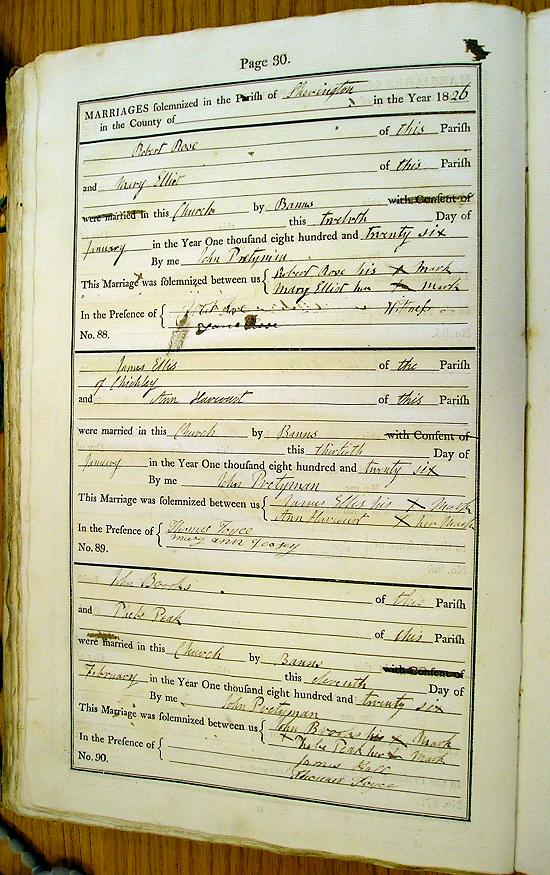 Page 30.
MARRIAGES solemnized in the Parish of Sherington in the Year 1826
in the County of
Robert Rose of this Parish
and Mary Elliot of this Parish
were married in this Church by Banns with Consent of
this twelvth Day of
January in the Year One thousand eight hundred and twenty six
By me John Pretyman
This Marriage was solemnized between us { Robert Rose his X Mark
Mary Elliot her X Mark
In the Presence of {
No. 88.
James Ellis of the Parish
of Chichley
and Ann Harcourt of this Parish
were married in this Church by Banns with Consent of
this thirtieth Day of
January in the Year One thousand eight hundred and twenty six
By me John Pretyman
This Marriage was solemnized between us { James Ellis his X Mark
Ann Harcourt X her Mark
In the Presence of { Thomas Joyce
Mary ann
No. 89.
John Brooks of this Parish
and Phebe Peak of this Parish
were married in this Church by Banns with Consent of
this Day of
February in the Year One thousand eight hundred and twenty six
By me John Pretyman
This Marriage was solemnized between us { John Brooks his X Mark
Phebe Peak her X Mark
In the Presence of { James
No. 90. Thomas Joyce